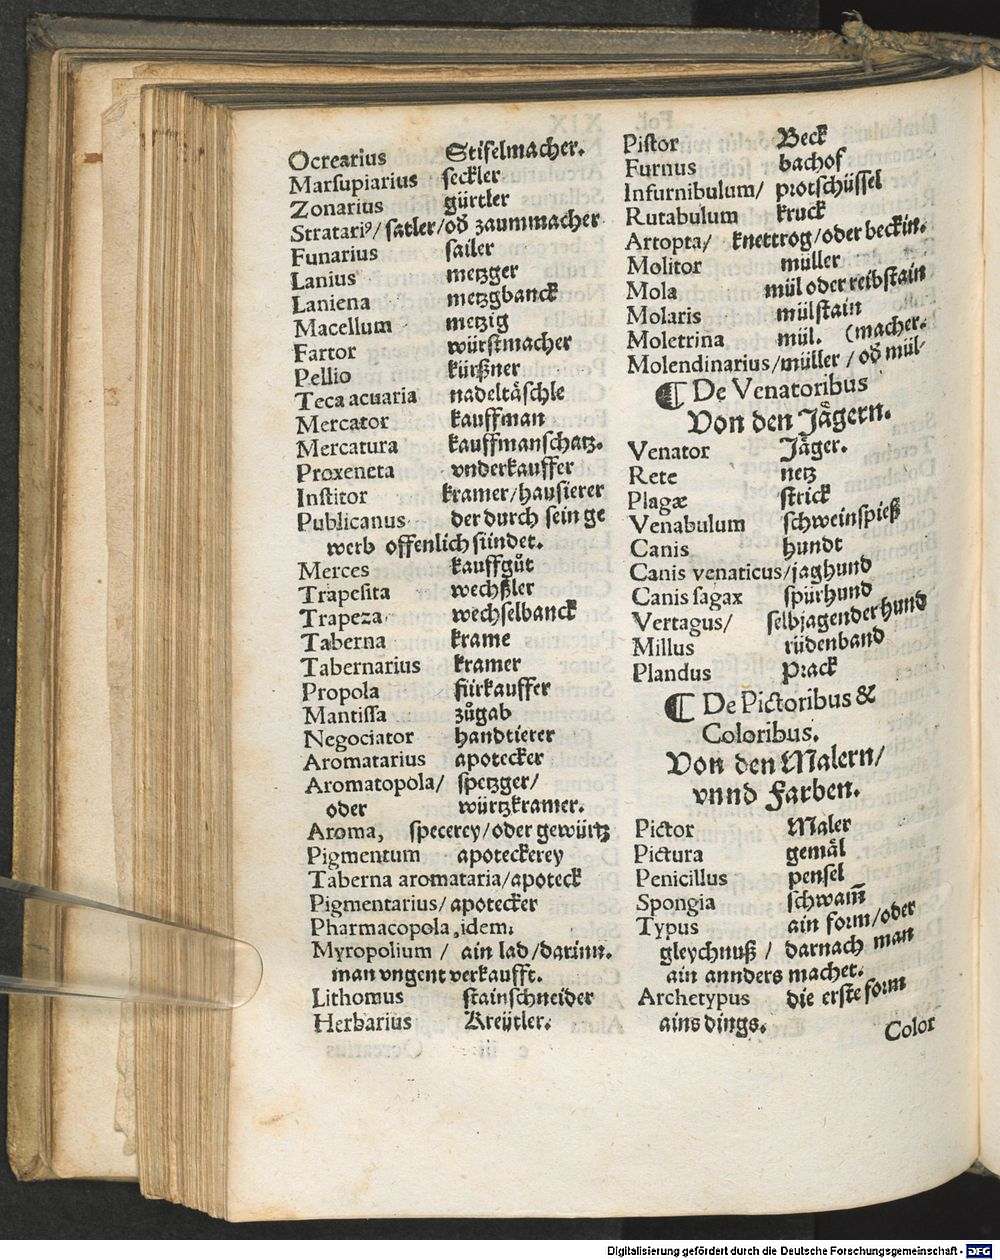 Ocrearius Stifelmacher.
Marsupiarius seckler
Zonarius gürtler
Stratariꝰ/ satler/od̕ zaummacher
Funarius sailer
Lanius metzger
Laniena metzgbanck
Macellum metzig
Fartor würstmacher
Pellio kürßner
Teca acuaria nadeltäschle
Mercator kauffman
Mercatura kauffmanschatz.
Proxeneta vnderkauffer
Institor kramer/hausierer
Publicanus der durch sein ge
werb offenlich sündet.
Merces kauffgůt
Trapesita wechßler
Trapeza wechselbanck
Taberna krame
Tabernarius kramer
Propola fürkauffer
Mantissa zůgab
Negociator handtierer
Aromatarius apotecker
Aromatopola/ spetzger/
oder würtzkramer.
Aroma, specerey/oder gewürtz
Pigmentum apoteckerey
Taberna aromataria/apoteck
Pigmentarius/ apotecker
Pharmacopola,idem:
Myropolium / ain lad/darinn.
man vngent verkaufft.
Lithomus stainschneider
Herbarius Kreütler.
Pistor Beck
Furnus bachof
Infurnibulum/ protschüssel
Rutabulum kruck
Artopta/ knettrog/oder beckin.
Molitor müller
Mola mül oder reibstain
Molaris mülstain
Moletrina mül. (macher.
Molendinarius/müller / od̕ mül-
¶ De Venatoribus
Von den Jägern.
Venator Jäger.
Rete netz
Plagæ strick
Venabulum schweinspieß
Canis hundt
Canis venaticus/jaghund
Canis sagax spürhund
Vertagus/ selbjagender hund
Millus rüdenband
Plandus prack
¶ De Pictoribus &
Coloribus.
Von den Malern/
vnnd Farben.
Pictor Maler
Pictura gemäl
Penicillus pensel
Spongia schwam̄
Typus ain form/oder
gleychnuß / darnach man
ain annders machet.
Archetypus die erste form
ains dings.
Color
Digitalisierung gefördert durch die Deutsche Forschungsgemeinschaft - DFG